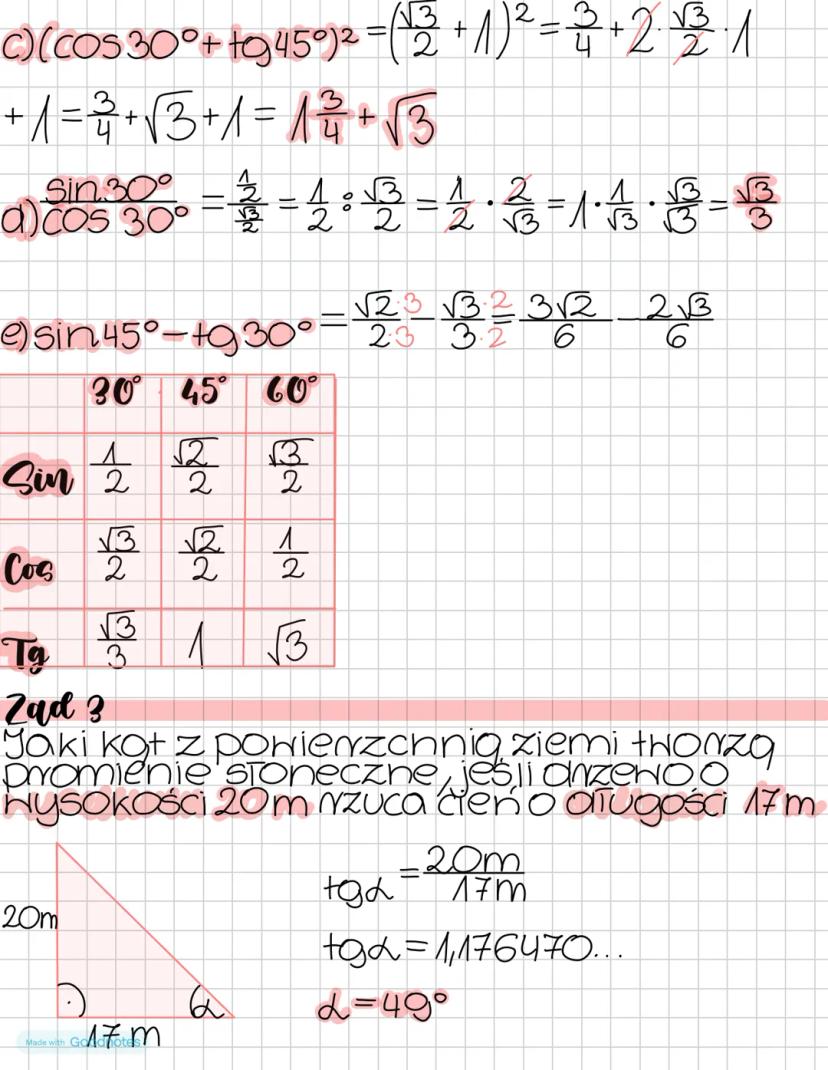 c)(cos30°+tg45°)²=(√3/2+1)²=3/4+2·√3/2·1
+1=3/4+√3+1=1 3/4+√3
d) sin30°/cos 30° = (1/2)/(√3/2) = 1/2 : √3/2 = 1/2 · 2/√3 = 1·1/√3 · √3/√3 = √3/3
e) sin45°-tg30° = √2·3/2·3 - √3·2/3·2 = 3√2/6 - 2√3/6
30° 45° 60°
Sin 1/2 √2/2 √3/2
Cos √3/2 √2/2 1/2
Tg √3/3 1 √3
Zad 3
Jaki kąt z powierzchnią ziemi tworzą
promienie słoneczne, jeśli drzewo o
wysokości 20m rzuca cień o długości 17m
tgα = 20m/17m
20m
tgα=1,176470...
α=49°
α
17m
Made with Goodnotes